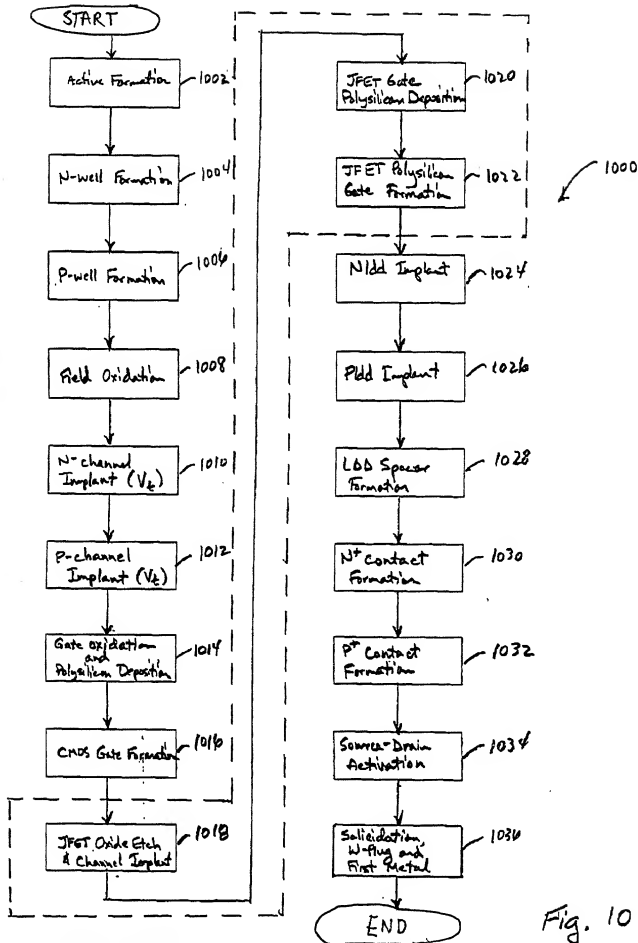 START
Active Formation
1002
N-well Formation
1004
P-well Formation
1006
Field Oxidation
1008
N-channel
Implant (Vt)
1010
P-channel
Implant (Vt)
1012
Gate oxidation
and
Polysilicon Deposition
1014
CMOS Gate Formation
1016
JFET Oxide Etch
& Channel Implant
1018
JFET Gate
Polysilicon Deposition
1020
JFET Polysilicon
Gate Formation
1022
1000
Nldd Implant
1024
Pldd Implant
1026
LDD Spacer
Formation
1028
N+ Contact
Formation
1030
P+ Contact
Formation
1032
Source-Drain
Activation
1034
Salicidation,
W-Plug and
First Metal
1036
END
Fig. 10